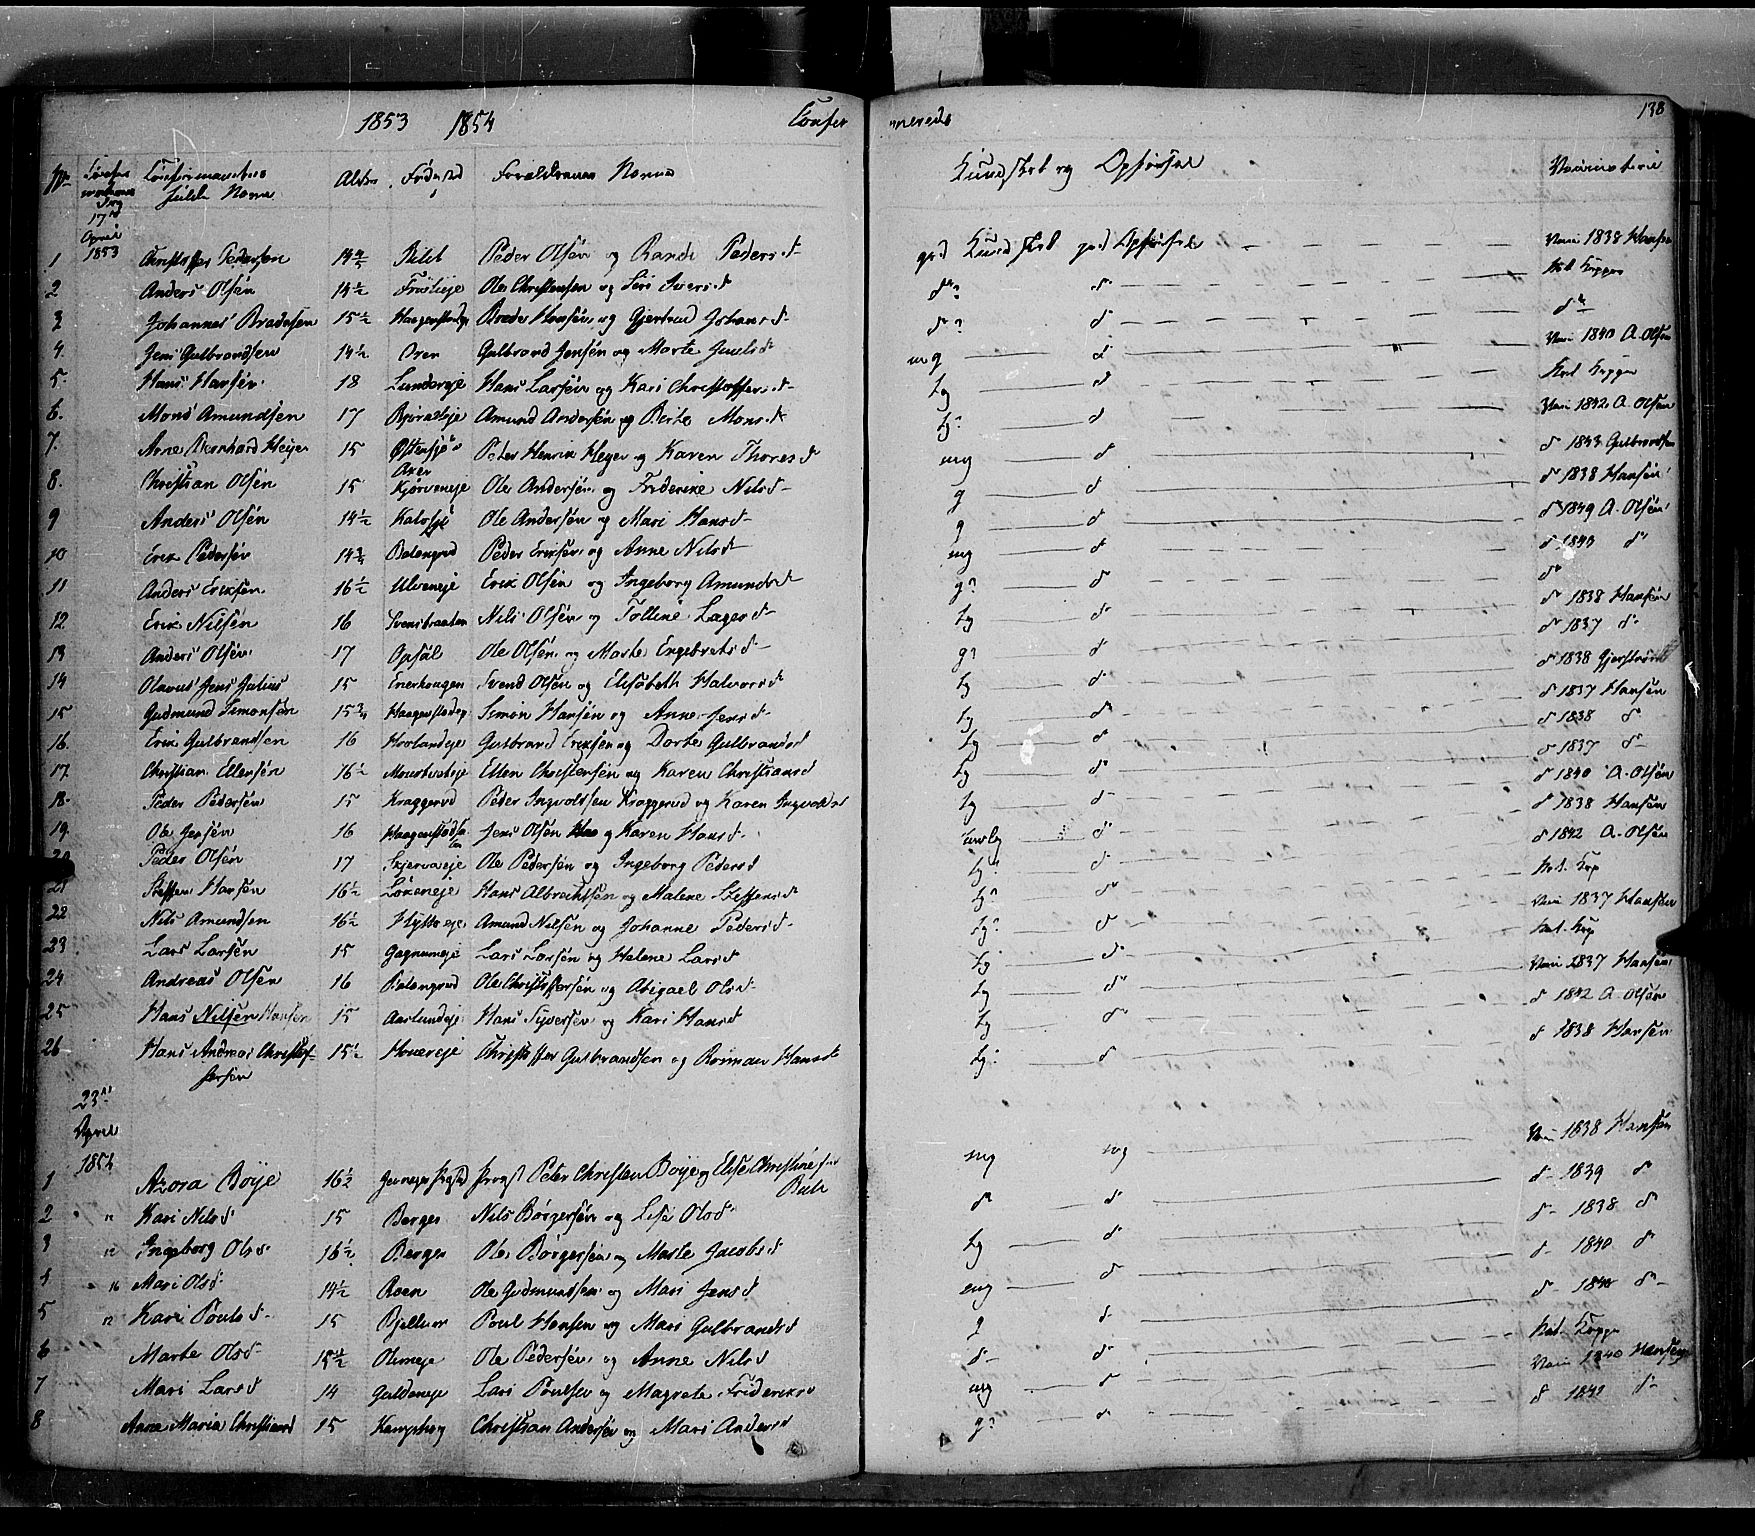 1853 1854 Confir merede 138
No Confirmationsdag Confirmanternes fulde Navne Alder Fødested Forældrenes Navne Kundskab og Opførsel Vaccinaterie
17de April 1853
1 Christoffer Pedersen 14 4/5 Peder Olsen og Randi Pedersd god Kundskab god Opførsel Vac: 1838 Hansen
2 Anders Olsen 14½ Ole Christensen og Siri Iversd do? do Nat. Kopper
3 Johannes Bradesen 15½ Haagenstadeje Brede Hansen og Gjertrud Johansd do? do do
4. Jens Gulbrandsen 14½ Oren Gulbrand Jensen og Marte Juulsd mg do Vac: 1840 A. Olsen
5. Hans Hansen 18 Lundereje Hans Larsen og Kari Christoffersd tg do Nat. Kopper
6. Mons Amundsen 17 Amund Andersen og Berte Monsd tg? do Vac: 1842 A. Olsen
7. Arne Bernhard Heyer 15 Østensjø Peter Henrik Heyer og Karen Thoresd mg do do 1843 Gulbrandsen
8. Christian Olsen 15 Kjørveneje Ole Andersen og Friderike Nilsd g do do 1838 Hansen
9 Anders Olsen 14½ Ole Andersen og Mari Hansd g do do 1849 A. Olsen
10 Erik Pedersen 14¾ Balengrud Peder Eriksen og Anne Nilsd mg do do 1840 do
11 Anders Eriksen 16½ Ulveneje Erik Olsen og Ingeborg Amundsd g? do do
12 Erik Nilsen 16 Svensbraaten Nils Olsen og Tolline Lagesd tg do do 1838 Hansen
13 Anders Olsen 17 Opsal Ole Olsen og Marte Engebretsd g? do do 1837 do
14 Olavus Jens Julius 15 Enerhougen Svend Olsen og Elisabeth Halvorsd tg do do 1838 Gjerstrøm
15 Gudmund Simonsen 15¾ Haagenstadeje Simon Hansen og Anne Jensd tg do do 1837 Hansen
16. Erik Gulbrandsen 16 Hovlandeje Gulbrand Eriksen og Dorte Gulbrandsd tg do do 1838 do
17. Christian Ellensen 16½ Ellen Christensen og Karen Christiansd tg do do 1837 do
18. Peder Pedersen 15 Kraggerud Peder Ingvoldsen Kraggerud og Karen Ingvoldsd tg do do 1840 A. Olsen
19. Ole Jensen 16 Jens Olsen og Karen Hansd do do 1838 Hansen
20 Peder Olsen 17 Skjerveneje Ole Pedersen og Ingeborg Pedersd tg. do do 1842 A. Olsen
21 Steffen Hansen 16½ Løkeneje Hans Albrechtsen og Malene Steffensd tg? do Nat. Kop
22 Nils Amundsen 16½ Hytteeje Amund Nilsen og Johanne Pedersd tg? do Vac: 1837 Hansen
23 Lars Larsen 15 Gagnumeje Lars Larsen og Helene Larsd tg do Nat. Kop
24 Andreas Olsen 16 Balengrud Ole Christoffersen og Abigael Olsd tg do Vac: 1837 Hansen
25 Hans Nilsen Hansen 15 Aaslundeje Hans Syversen og Kari Hansd tg do do 1842 A. Olsen
26 Hans Andreas Christoffersen 15½ Christoffer Gulbrandsen og Hansd tg. do do 1838 Hansen
23de April 1854
1 Azora Boije 16½ Jevnager Provst Peter Christian Boije og Elise Christine Buch mg mg Vac: 1838 Hansen
2 " Kari Nilsd 15 Berger Nils Børgersen og Lise Olsd do do do 1839 do
3 " Ingeborg Olsd 16½ Berger Ole Børgersen og Marte Jacobsd tg do do 1838 do
4 " Mari Olsd 14½ Roen Ole Gudmundsen og Mari Jensd mg do do 1840 do
5 " Kari Poulsd 15 Bjellum Poul Hansen og Mari Gulbrandsd g do do 1840 do
6 Marte Olsd 15½ Olimeje Ole Pedersen og Anne Nilsd do do Nat. Kopper
7 Mari Larsd 14 Guldeneje Lars Poulsen og Magrete Frideriksd mg do Vac: 1840 Hansen
8 Anne Maria Christiansd 15 Christian Andersen og Mari Andersd g? do do 1842 do